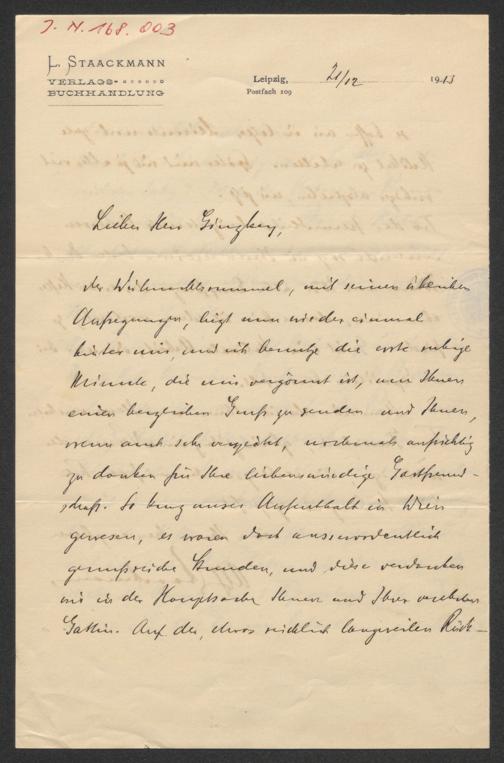 J. N. 168.003
L. STAACKMANN
VERLAGS-
BUCHHANDLUNG
Leipzig, 21/12 1913
Postfach 109
Lieber Herr Ginzkey,
der Weihnachtsrummel, mit seinen üblichen
Aufregungen, liegt nun wieder einmal
hinter mir, und ich benutze die erste ruhige
Minute, die mir vergönnt ist, um Ihnen
einen herzlichen Gruß zu senden und Ihnen,
wenn auch sehr verspätet, nochmals aufrichtig
zu danken für Ihre liebenswürdige Gastfreund-
schaft. So kurz unser Aufenthalt in Wien
gewesen, es waren doch ausserordentlich
genußreiche Stunden, und diese verdanken
wir in der Hauptsache Ihnen und Ihrer verehrten
Gattin. Auf der, etwas reichlich langweilen Rück-